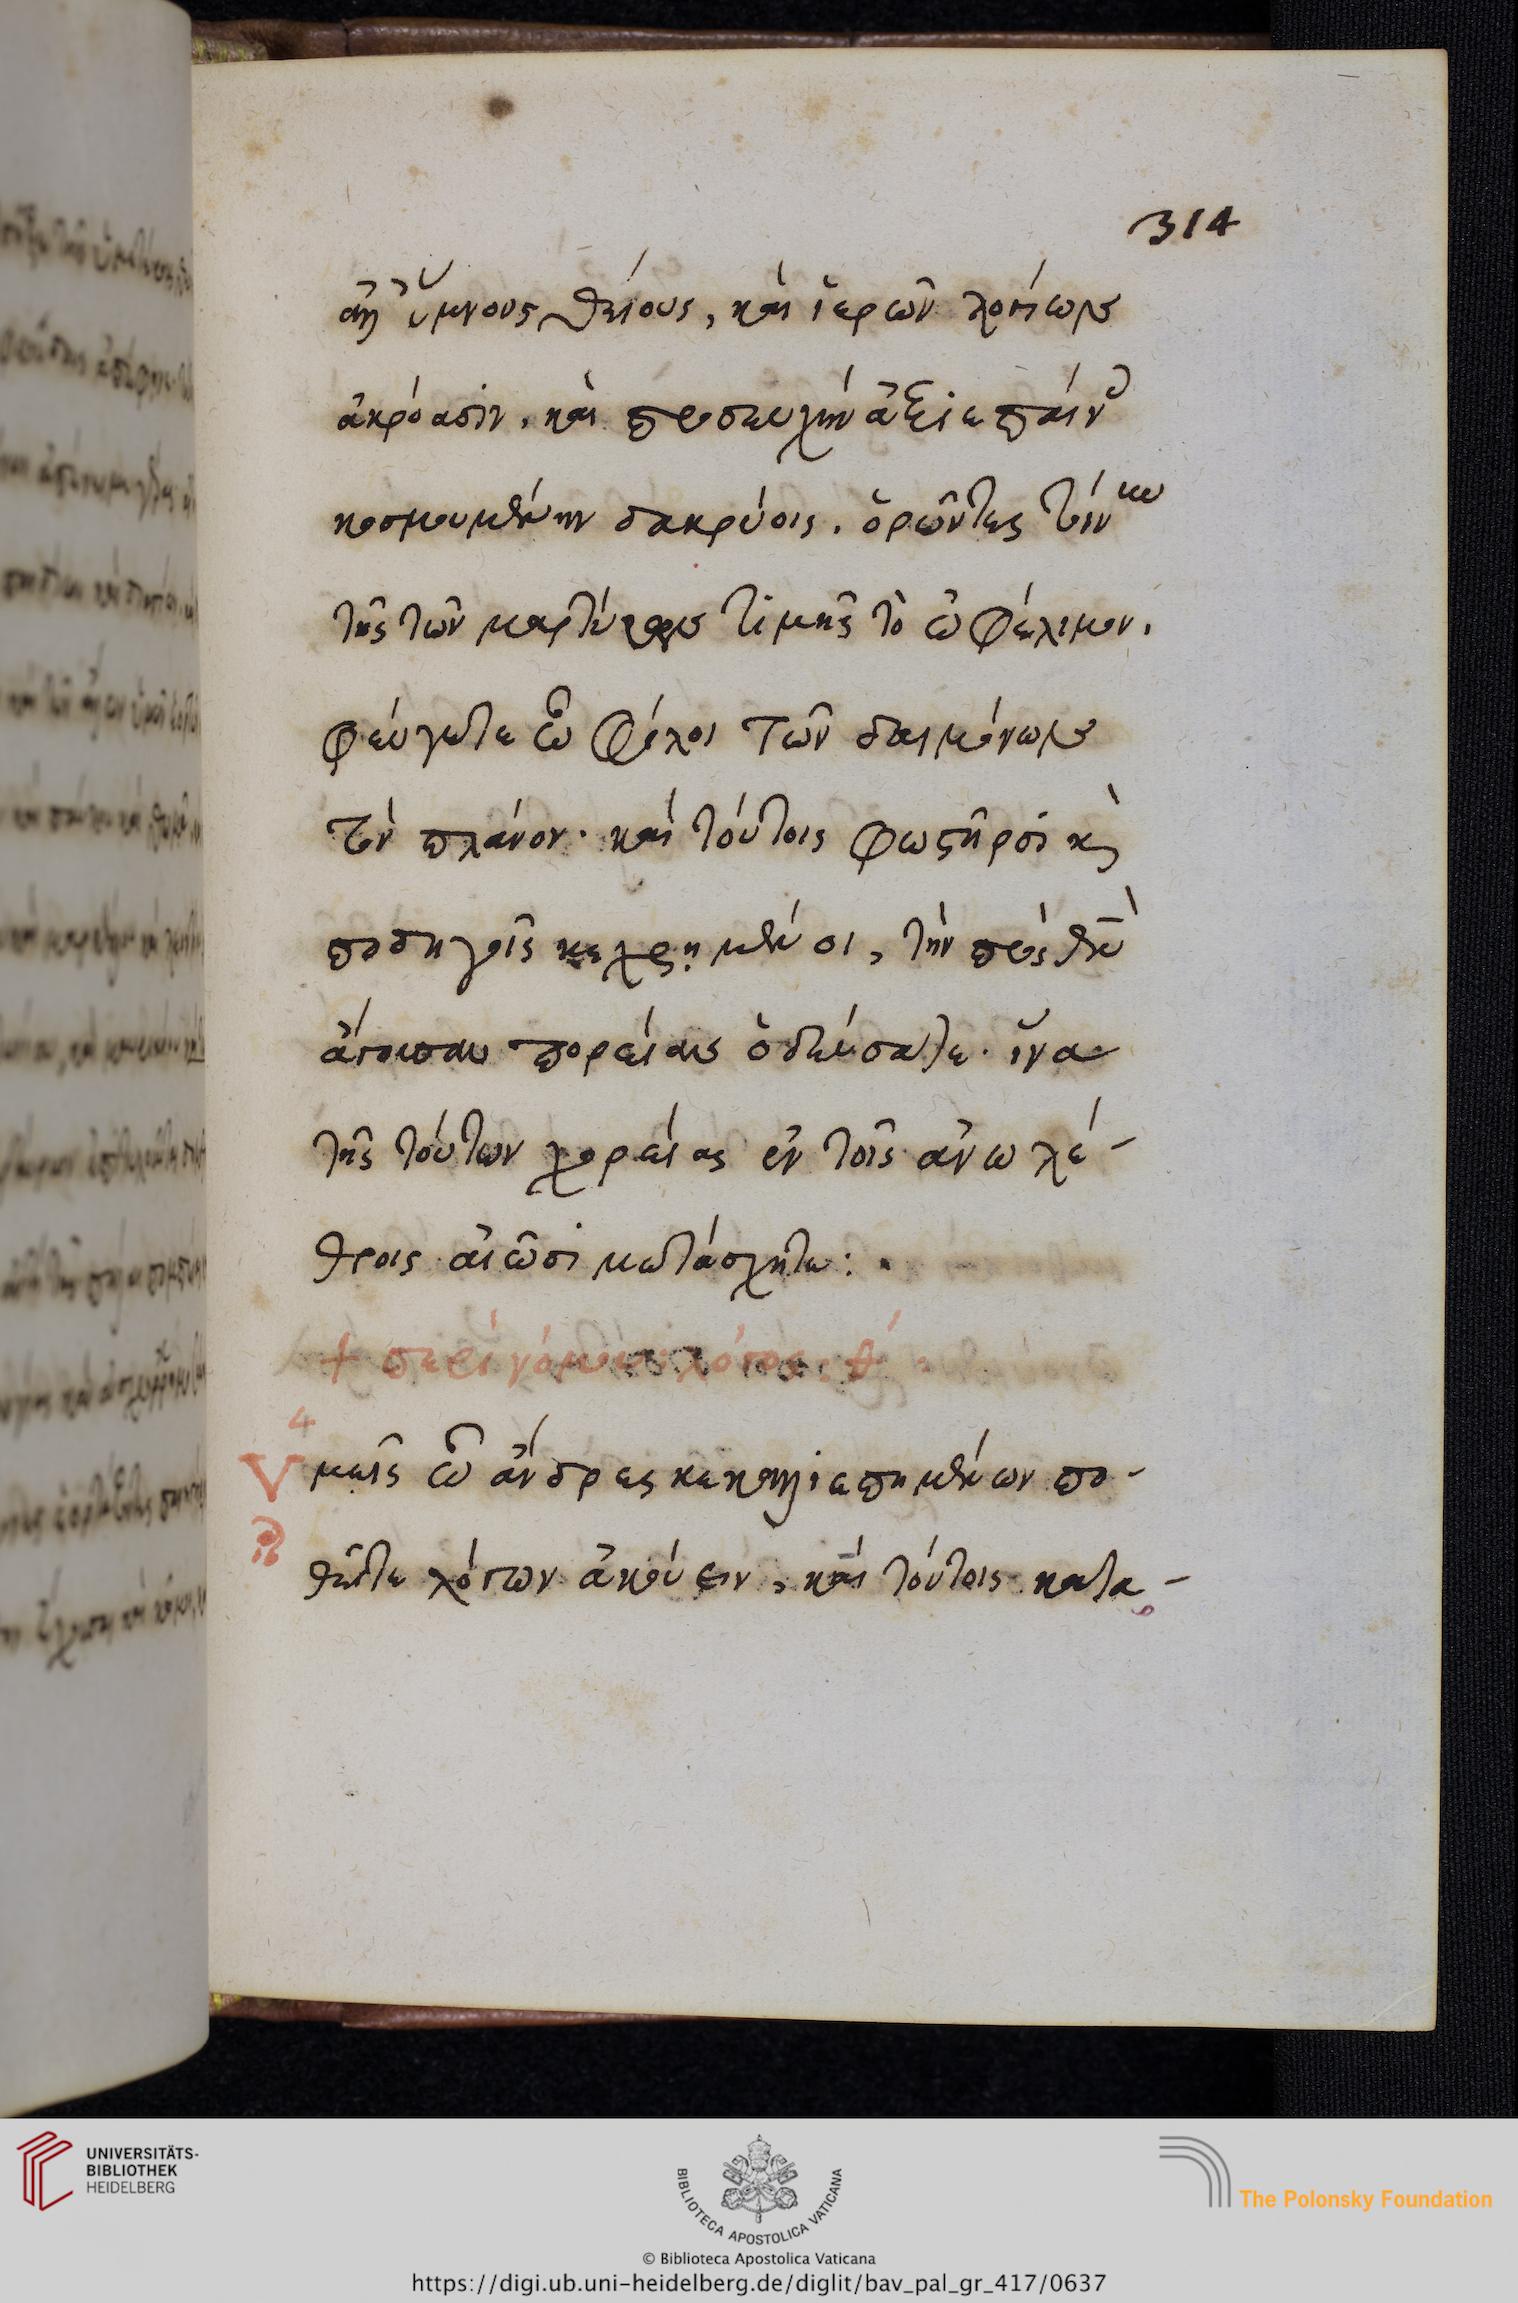 314
ἀλλ' ὕμνους θείους, καὶ ἱερῶν λογίων
ἀκρόασιν, καὶ προσευχὴν ἀξιεπαίνοις
κοσμουμένην δακρύοις. ὁρῶντες τοίνυν
τῆς τῶν μαρτύρων τιμῆς τὸ ὠφέλιμον,
φεύγετε ὦ φίλοι τῶν δαιμόνων
τὸν πλάνον. καὶ τούτοις φωστῆρσι καὶ
ποδηγοῖς κεχρημένοι, τὴν πρὸς θεὸν
ἄγουσαν πορείαν ὁδεύσατε. ἵνα
τῆς τούτων χορείας ἐν τοῖς ἀνωλέ-
θροις αἰῶσι μετάσχητε:
+ περὶ νόμων: λόγος: θ΄:
4
Υμεῖς ὦ ἄνδρες κεκαλλιεπημένων πο-
θεῖτε λόγων ἀκούειν, καὶ τούτοις κατα-
UNIVERSITÄTS-
BIBLIOTHEK
HEIDELBERG
BIBLIOTECA APOSTOLICA VATICANA
The Polonsky Foundation
© Biblioteca Apostolica Vaticana
https://digi.ub.uni-heidelberg.de/diglit/bav_pal_gr_417/0637